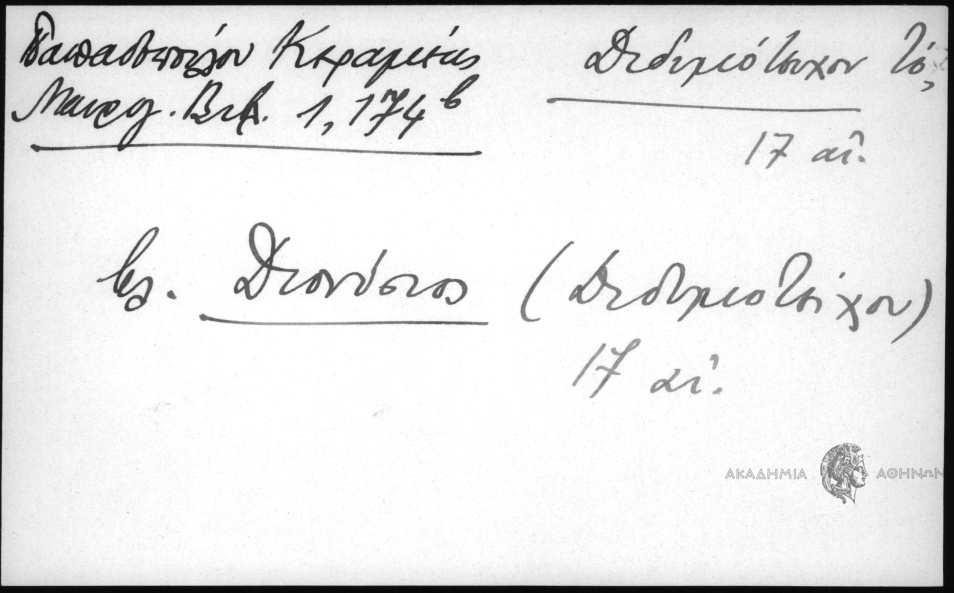 Παπαδοπούλου Κεραμέως
Μαυρογ. Βιβ. 1, 174β
Διδυμότειχον τό,
17 αἰ.
βλ. Διονύσιος (Διδυμοτείχου)
17 αἰ.
ΑΚΑΔΗΜΙΑ ΑΘΗΝΩΝ